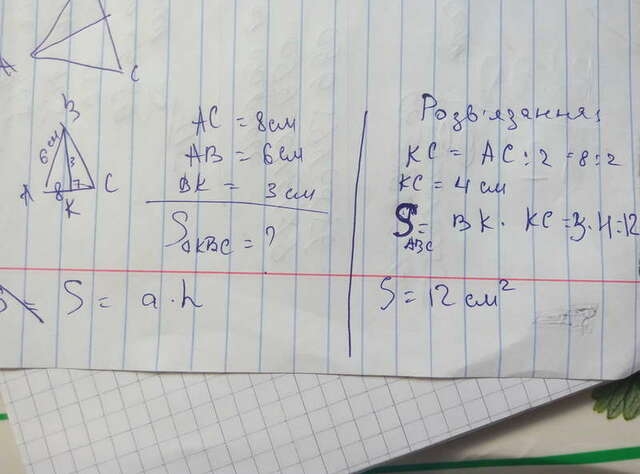 A C
B
6см 3
A 8 7 C
K
AC = 8см
AB = 6см
BK = 3 см
S△KBC = ?
S = a · h
Розв'язання:
KC = AC : 2 = 8 : 2
KC = 4 см
S ABC = BK · KC = 3 · 4 = 12
S = 12 см²